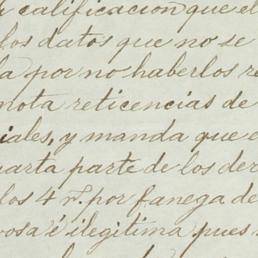 calificacion que el
los datos que no se
a por no haberlos re
nota reticencias de
iales, y manda que e
uarta parte de los der
los 4 r.s por fanega de
osa é ilegitima pues